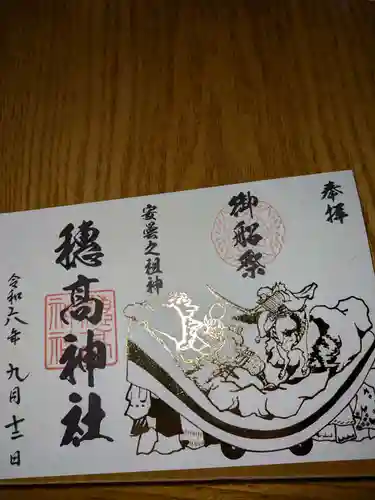 奉拝
御船祭
安曇之祖神
穗高神社
令和六年 九月 十二日